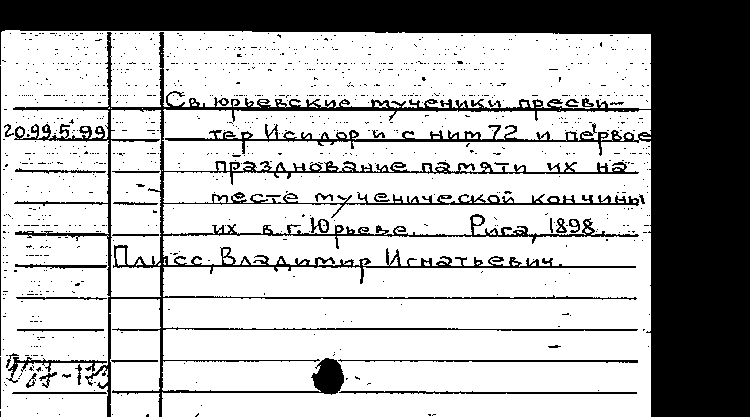 Св. юрьевские мученики пресви-
20.99.5.99 тер Исидор и с ним 72 и первое
празднование памяти их на
месте мученической кончины
их в г. Юрьеве. Рига, 1898.
Плисс, Владимир Игнатьевич.